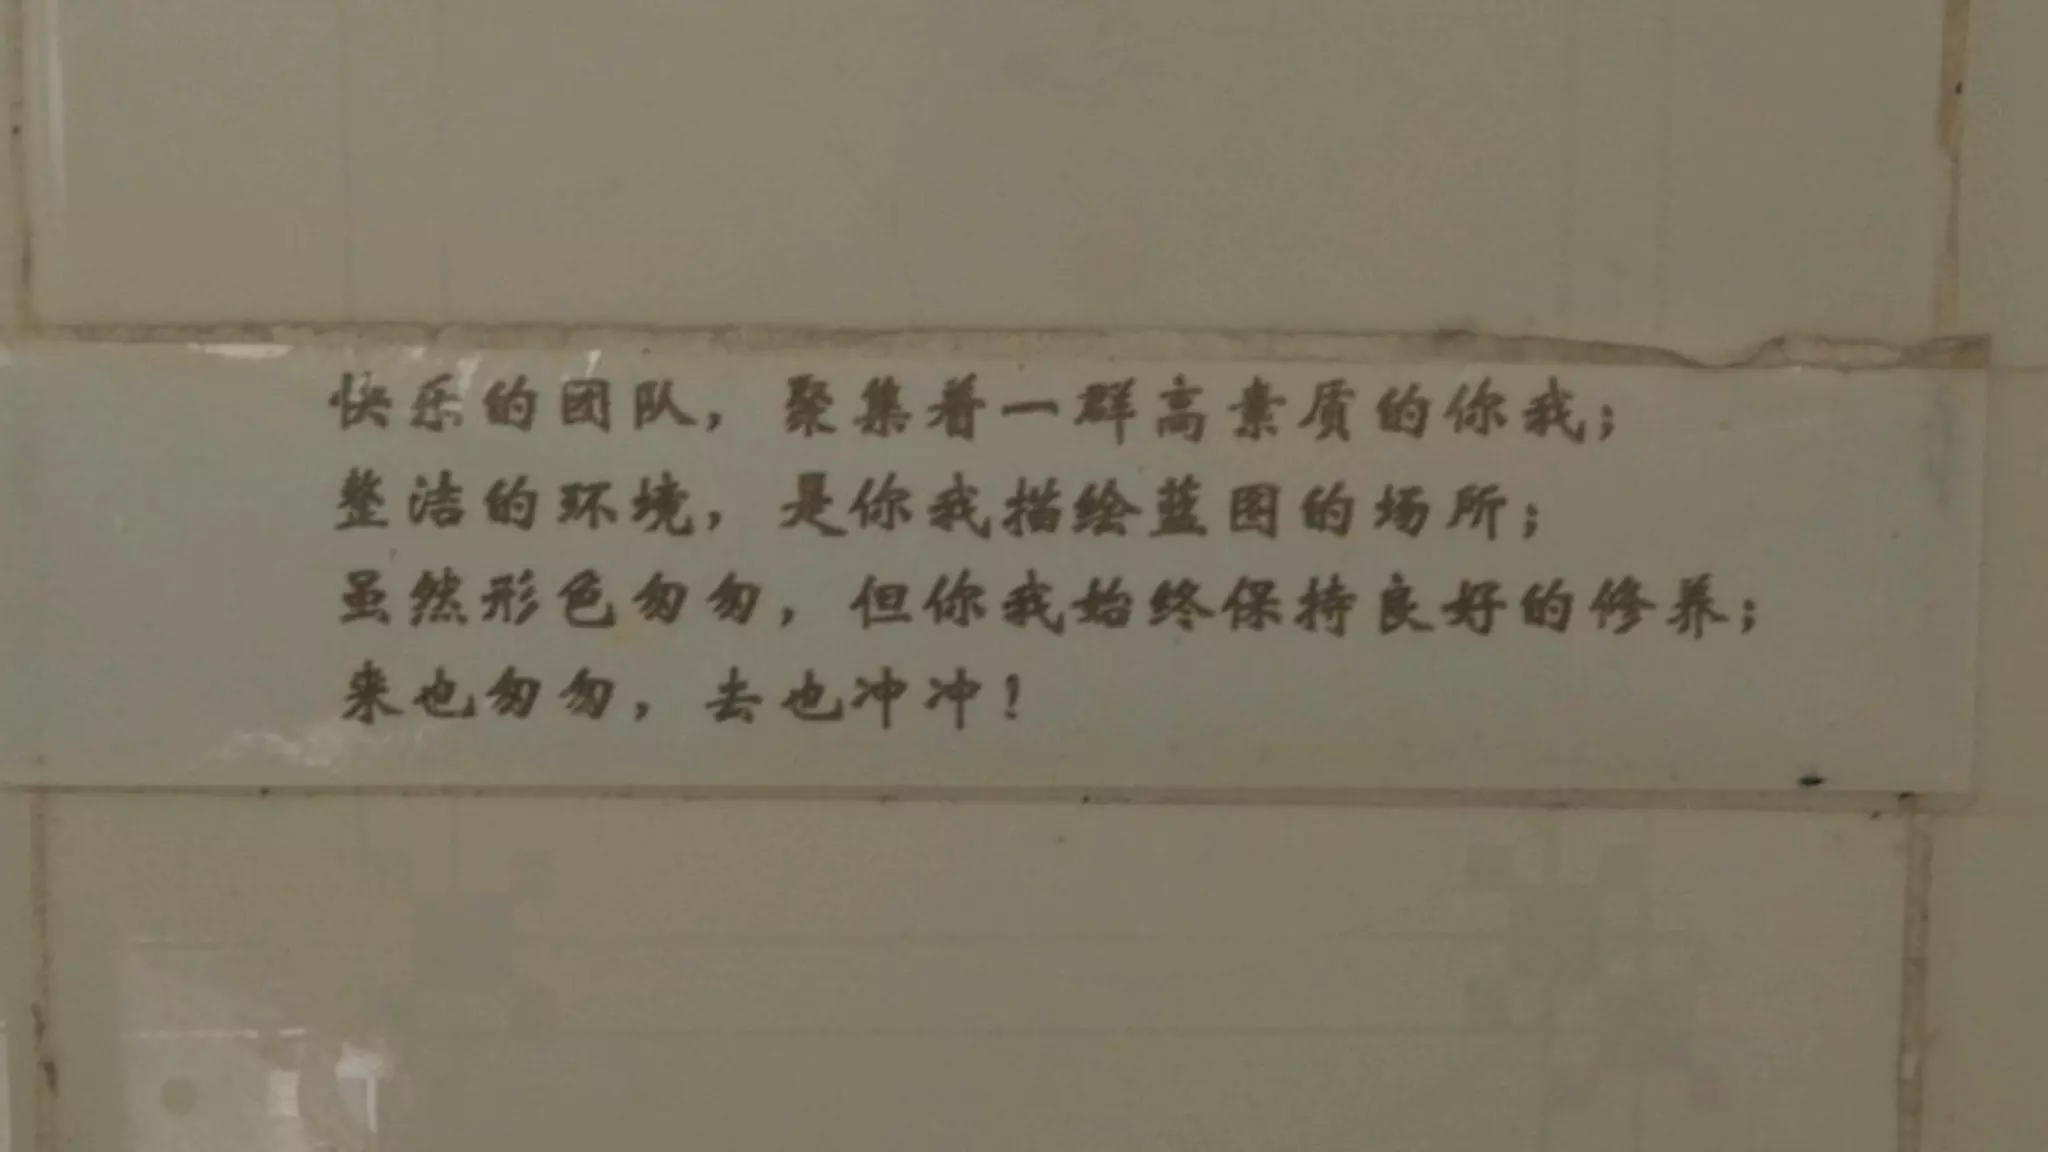 快乐的团队，聚集着一群高素质的你我；
整洁的环境，是你我描绘蓝图的场所；
虽然形色匆匆，但你我始终保持良好的修养；
来也匆匆，去也冲冲！